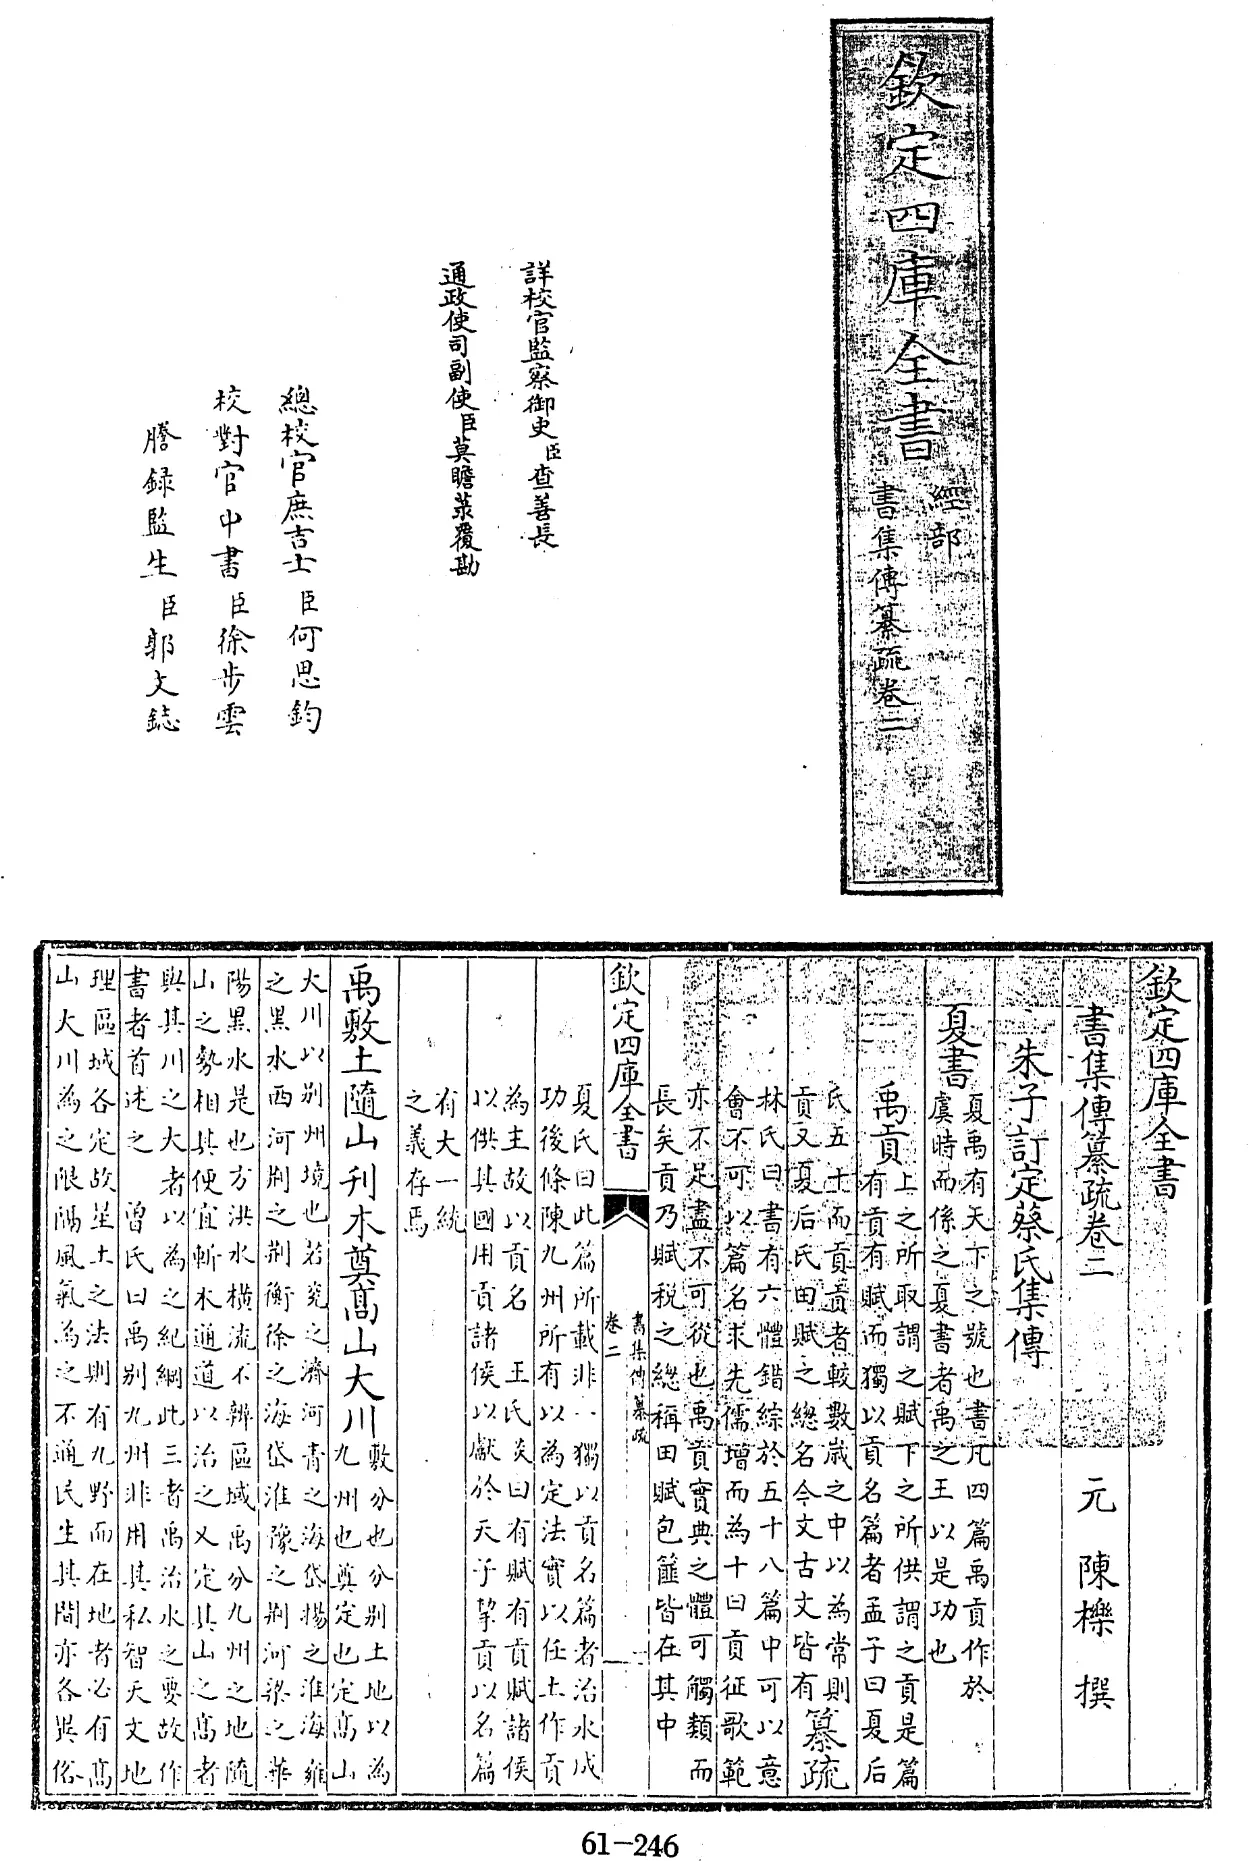 欽定四庫全書
經部
書集傳纂疏卷二
詳校官監察御史臣查善長
通政使司副使臣莫瞻菉覆勘
總校官庶吉士臣何思鈞
校對官中書臣徐步雲
謄録監生臣郭文鋕
欽定四庫全書
書集傳纂疏卷二
元 陳櫟 撰
朱子訂定蔡氏集傳
夏書
夏禹有天下之號也書凡四篇禹貢作於
虞時而係之夏書者禹之王以是功也
禹貢
上之所取謂之賦下之所供謂之貢是篇
有貢有賦而獨以貢名篇者孟子曰夏后
氏五十而貢貢者較數歲之中以為常則
貢又夏后氏田賦之總名今文古文皆有
纂疏
林氏曰書有六體錯綜於五十八篇中可以意
會不可以篇名求先儒增而為十曰貢征歌範
亦不足盡不可從也禹貢實典之體可觸類而
長矣貢乃賦稅之總稱田賦包篚皆在其中
欽定四庫全書
書集傳纂疏
卷二
夏氏曰此篇所載非一獨以貢名篇者治水成
功後條陳九州所有以為定法實以任土作貢
為主故以貢名 王氏炎曰有賦有貢賦諸侯
以供其國用貢諸侯以獻於天子挈貢以名篇
有大一統
之義存焉
禹敷土隨山刊木奠高山大川
敷分也分别土地以為
九州也奠定也定高山
大川以别州境也若兗之濟河青之海岱揚之淮海雍
之黑水西河荆之荆衡徐之海岱淮豫之荆河梁之華
陽黑水是也方洪水橫流不辨區域禹分九州之地隨
山之勢相其便宜斬木通道以治之又定其山之高者
與其川之大者以為之紀綱此三者禹治水之要故作
書者首述之 曽氏曰禹别九州非用其私智天文地
理區域各定故星土之法則有九野而在地者必有高
山大川為之限隔風氣為之不通民生其間亦各異俗
61-246